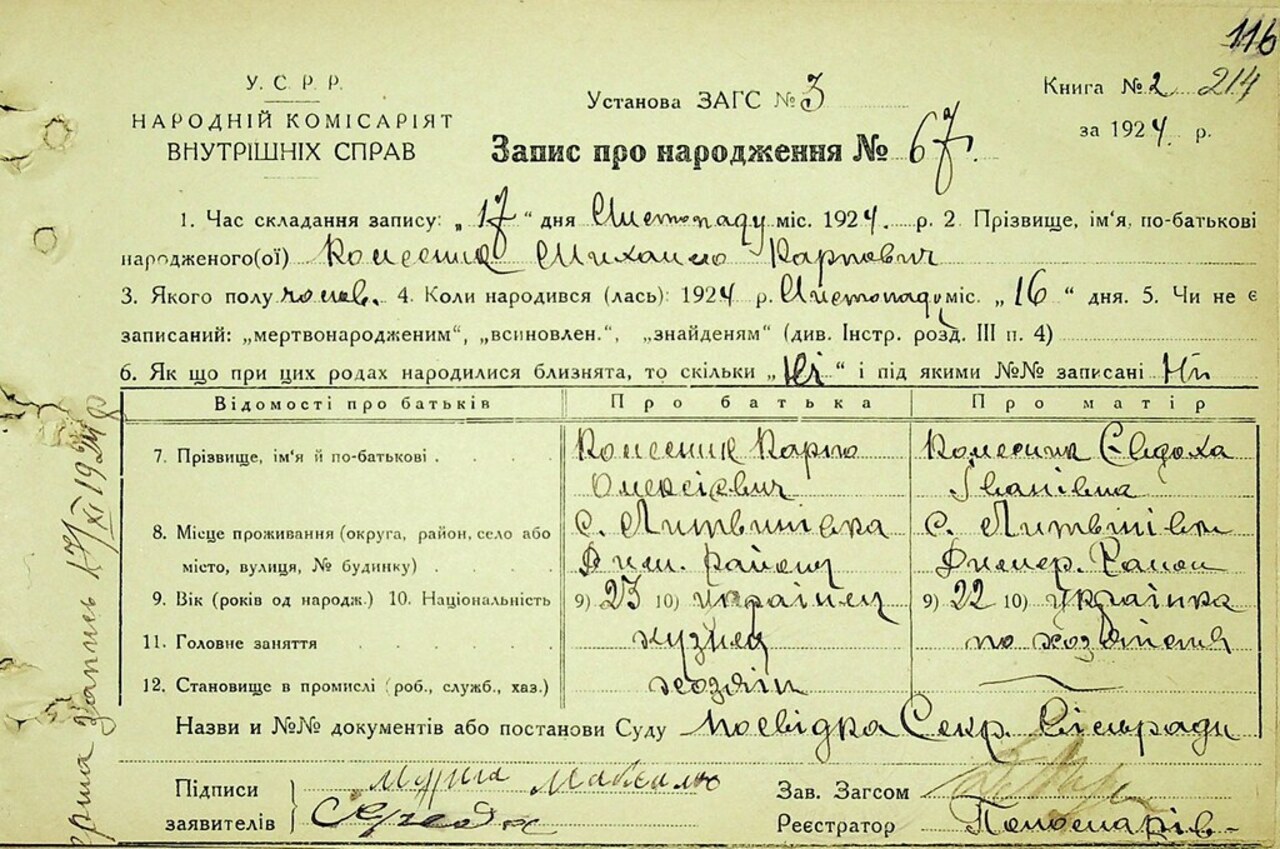 116
У. С. Р. Р.
НАРОДНІЙ КОМІСАРІЯТ
ВНУТРІШНІХ СПРАВ
Установа ЗАГС № 3
Книга № 2 214
за 1924 р.
Запис про народження № 67.
1. Час складання запису: „17“ дня Листопаду міс. 1924. р. 2. Прізвище, ім'я, по-батькові
народженого(ої) Колесник Михайло Карпович
3. Якого полу чолов. 4. Коли народився (лась): 1924 р. Листопаду міс. „16“ дня. 5. Чи не є
записаний: „мертвонародженим“, „всиновлен.“, „знайденям“ (див. Інстр. розд. III п. 4)
6. Як що при цих родах народилися близнята, то скільки „Ні“ і під якими №№ записані Ні
Відомості про батьків Про батька Про матір
7. Прізвище, ім'я й по-батькові Колесник Карпо Колесник Євдоха
Олексієвич Іванівна
8. Місце проживання (округа, район, село або с. Литвинівка с. Литвинівка
місто, вулиця, № будинку) Дим. району Димер. Район
9. Вік (років од народж.) 10. Національність 9) 23 10) українец 9) 22 10) українка
11. Головне заняття кузнец по хозяйству
12. Становище в промислі (роб., служб., хаз.) хозяїн
Назви и №№ документів або постанови Суду Посвідка Секр. Сільради
Підписи
заявителів
Зав. Загсом
Реєстратор
запись 17/XI 1924 р